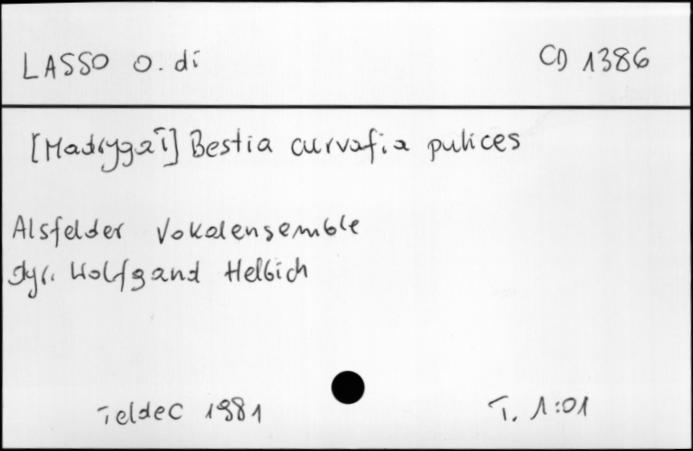 LASSO O. di CD 1386
[Madrygał] Bestia curvafia pulices
Alsfelder Vokalensemble
dyr. Wolfgand Helbich
Teldec 1981 T. 1:01